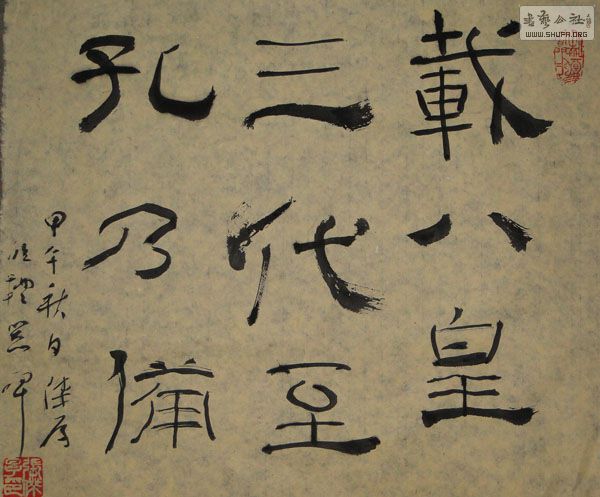 載八皇
三代至
孔乃備
甲午秋日
临礼器碑
書藝公社
WWW.SHUFA.ORG